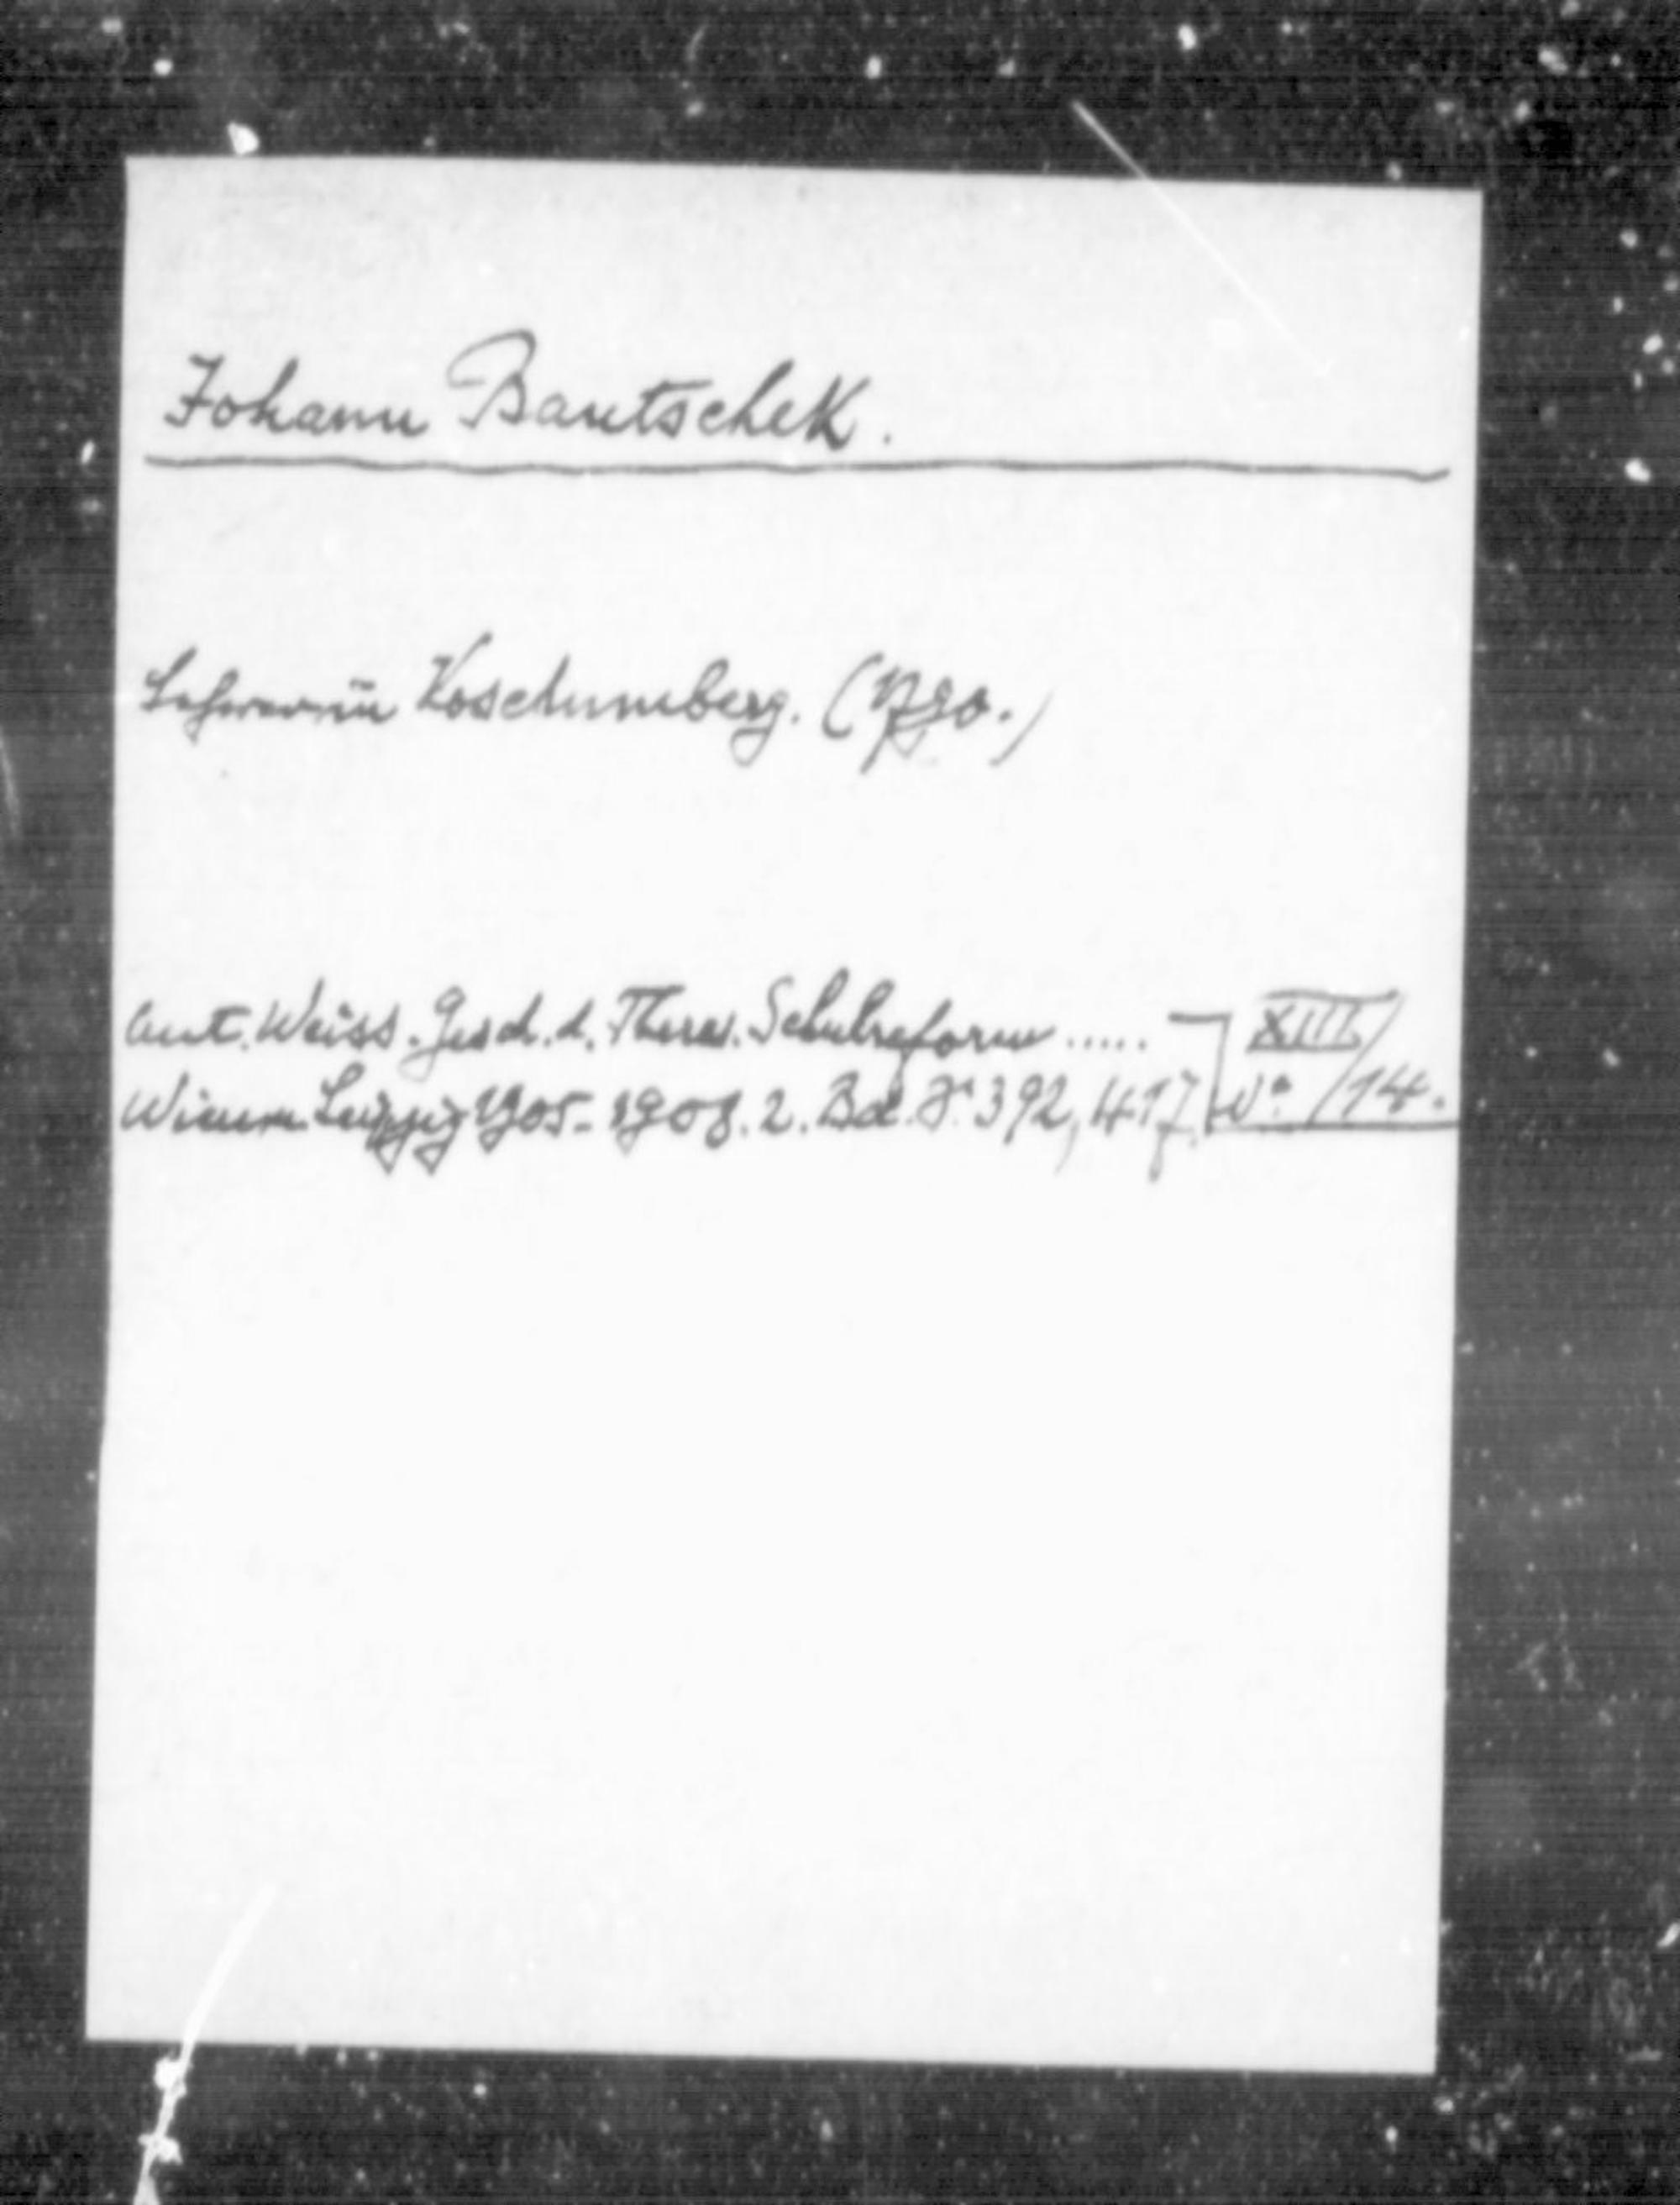 Johann Bautschek.
Lehrer in Koschumberg. (Bgo.)
Ant. Weiss. Gesch. d. Theres. Schulreform .....
Wien u. Leipzig 1905-1908. 2. Bd. S. 392, 417.
XIII/
Nº /14.